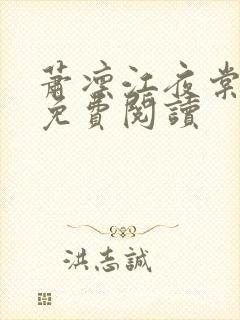 蕭凛江夜棠
免費閱讀
洪志誠